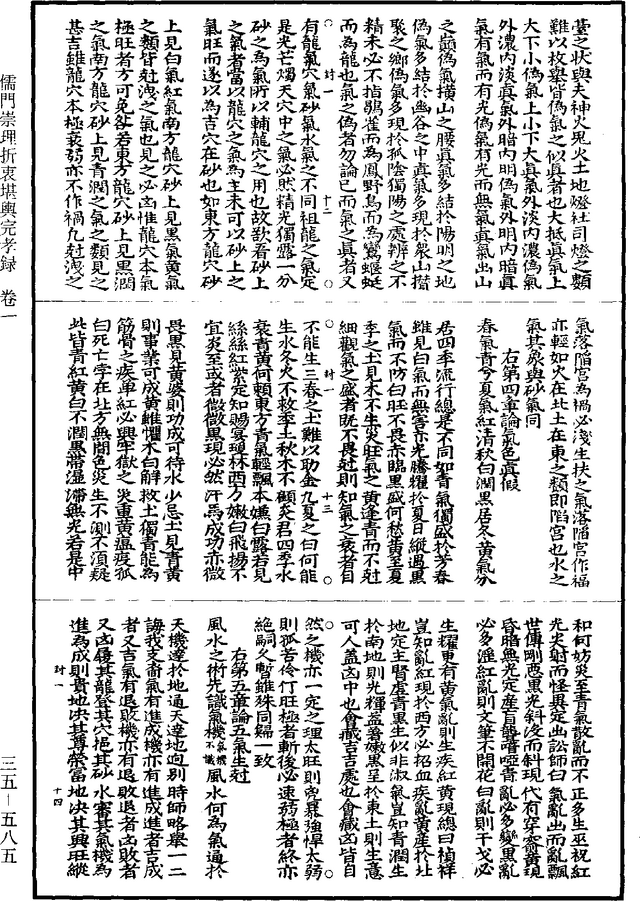 臺之狀與夫神火鬼火土地燈社司燈之類
難以枚舉皆偽氣之似真者也大抵真氣上
大下小偽氣上小下大真氣外淡內濃偽氣
外濃內淡真氣外暗內明偽氣外明內暗真
氣有氣而有光偽氣有光而無氣真氣出山
之巔偽氣橫山之腰真氣多結於陽明之地
偽氣多結於幽谷之中真氣多現於衆山攢
聚之鄉偽氣多現於孤陰獨陽之處辨之不
精未必不指鶴雀而為鳳野鳥而為鸞蝘蜓
而為龍也氣之偽者勿論已而氣之真者又
封一 十二
有龍氣穴氣砂氣水氣之不同祖龍之氣定
是光芒燭天穴中之氣必然精光獨露一分
砂之為氣所以輔龍穴之用也故欲看砂上
之氣者當以龍穴之氣為主未可以砂上之
氣旺而遂以為吉穴在砂也如東方龍穴砂
上見白氣紅氣南方龍穴砂上見黑氣黃氣
之類皆尅洩之氣也見之必凶惟龍穴本氣
極旺者方可免咎若東方龍穴砂上見黑潤
之氣南方龍穴砂上見青潤之氣之類見之
甚吉雖龍穴本極衰弱亦不作禍凡尅洩之
氣落陷宮為禍必淺生扶之氣落陷宮作福
亦輕如火在北土在東之類即陷宮也水之
氣其象與砂氣同
右第四章論氣色真假
春氣青兮夏氣紅清秋白潤黑居冬黃氣分
居四季流行總是不同如青氣獨盛於芳春
雖見白氣而無害赤光騰耀於夏日縱遇黑
氣而不防白旺不畏赤臨黑盛何愁黃至夏
季之土見木不生災旺氣之黃逢青而不尅
細觀氣之盛者既不畏尅則知氣之衰者自
封一 十三
不能生三春之土難以助金九夏之白何能
生水冬火不救季土秋木不顧炎君四季水
衰青黃何賴東方青氣輕飄本嫌白露若見
絲絲紅縈定知賜宴瓊林西方嫩白飛揚不
宜炎至或者微微黑現必然汗馬成功赤微
畏黑見黃婆則功成可待水少忌土見青黃
則事業可成黃雖懼木白解救土獨青龍為
筋骨之疾單紅必興牢獄之災重黃瘟疫孤
白死亡字在北方無閒色災生不測不須疑
此皆青紅黃白不潤黑帶溼滯無光若是中
和何妨炎至青氣散亂而不正多生巫祝紅
光尖射而怪異定出訟師白氣亂出而亂飄
世傳剛惡黑光斜沒而斜現代有穿窬黃現
昏暗無光定產盲聾喑啞青亂必多變黑亂
必多淫紅亂則文筆不開花白亂則干戈必
生耀更有黃氣亂則生疾紅黃現總曰禎祥
豈知亂紅現於西方必招血疾亂黃產於北
地定主腎虛青黑生似非淑氣豈知青潤生
於南地則光輝益著嫩黑呈於東土則生意
可人蓋凶中也會藏吉吉處也會藏凶皆自
然之機亦一定之理太旺則兇暴強悍太弱
則孤苦伶仃旺極者斬後必速弱極者終亦
絕嗣又暫雖殊同歸一致
右第五章論五氣生尅
風水之術先識氣機氣機不識風水何為氣通於
天機達於地通天達地迥別時師略舉一二
誨我支裔氣有進成機亦有進成進者吉成
者又吉氣有退敗機亦有退敗退者凶敗者
又凶履其龍登其穴挹其砂水審其氣機為
進為成則貴地決其尊榮富地決其興旺縱
封一 十四
儒門崇理折衷堪輿完孝録 卷一
三五—五八五